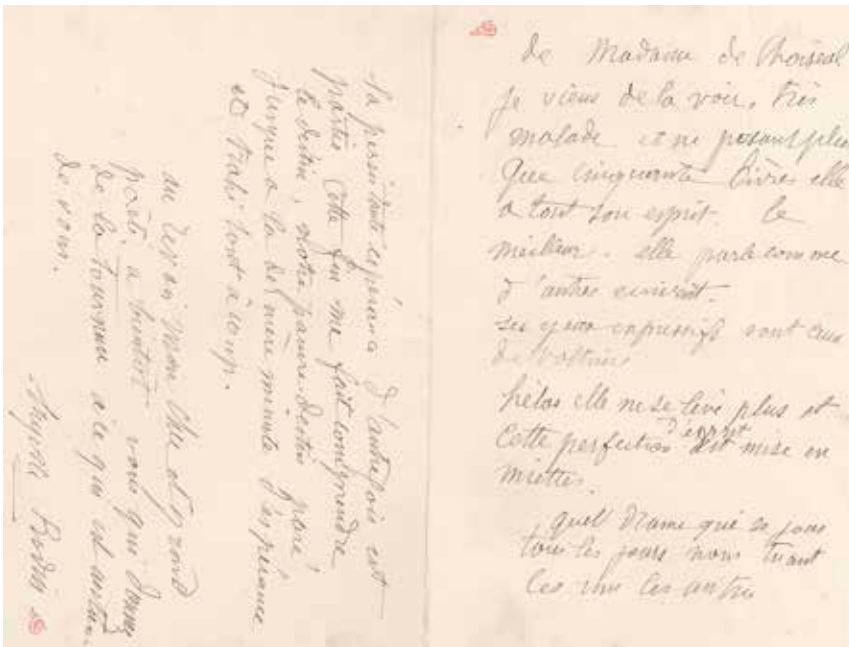 de Madame de Choiseul
je viens de la voir. très
malade et ne pesant plus
que cinquante livres elle
a tout son esprit. le
meilleur. elle parle comme
d'autres écrivent.
ses yeux expressifs sont ceux
de voltaire
hélas elle ne se lève plus et
cette perfection d'esprit est mise en
miettes.
quel drame qui se joue
tous les jours nous tuant
les uns les autres
Sa persistante espérance d'autrefois est
partie. cette fin me fait comprendre
le destin, notre pauvre destin paré
jusque a la dernière minute d'espérance
et trahi tout à coup.
au revoir mon cher et grand
poète a bientôt vous qui donnez
de la tournure a ce qui est autour
de vous.
Auguste Rodin